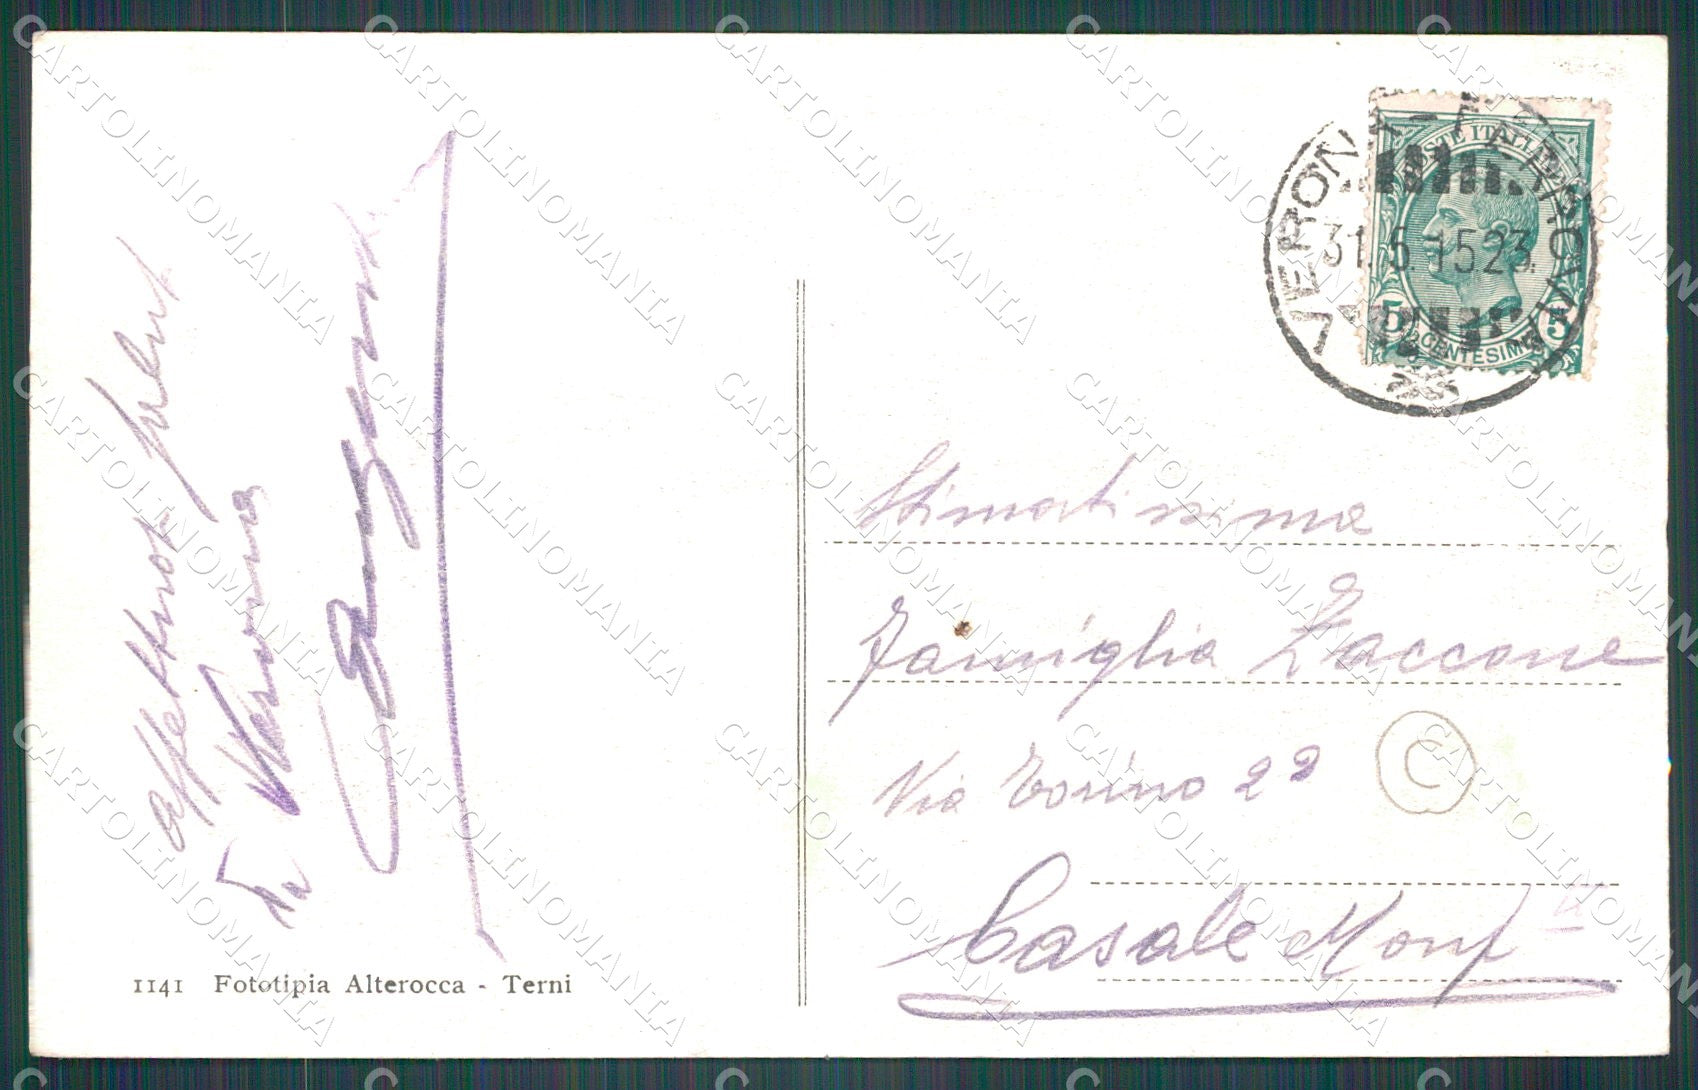 affettuosi saluti
Da Verona
Stimatissima
Famiglia Zaccone
Via Torino 22
Casale Monf
1141 Fototipia Alterocca - Terni
VERONA
31.5.15 23
POSTE ITALIANE
5 CENTESIMI 5
C
CARTOLINOMANIA